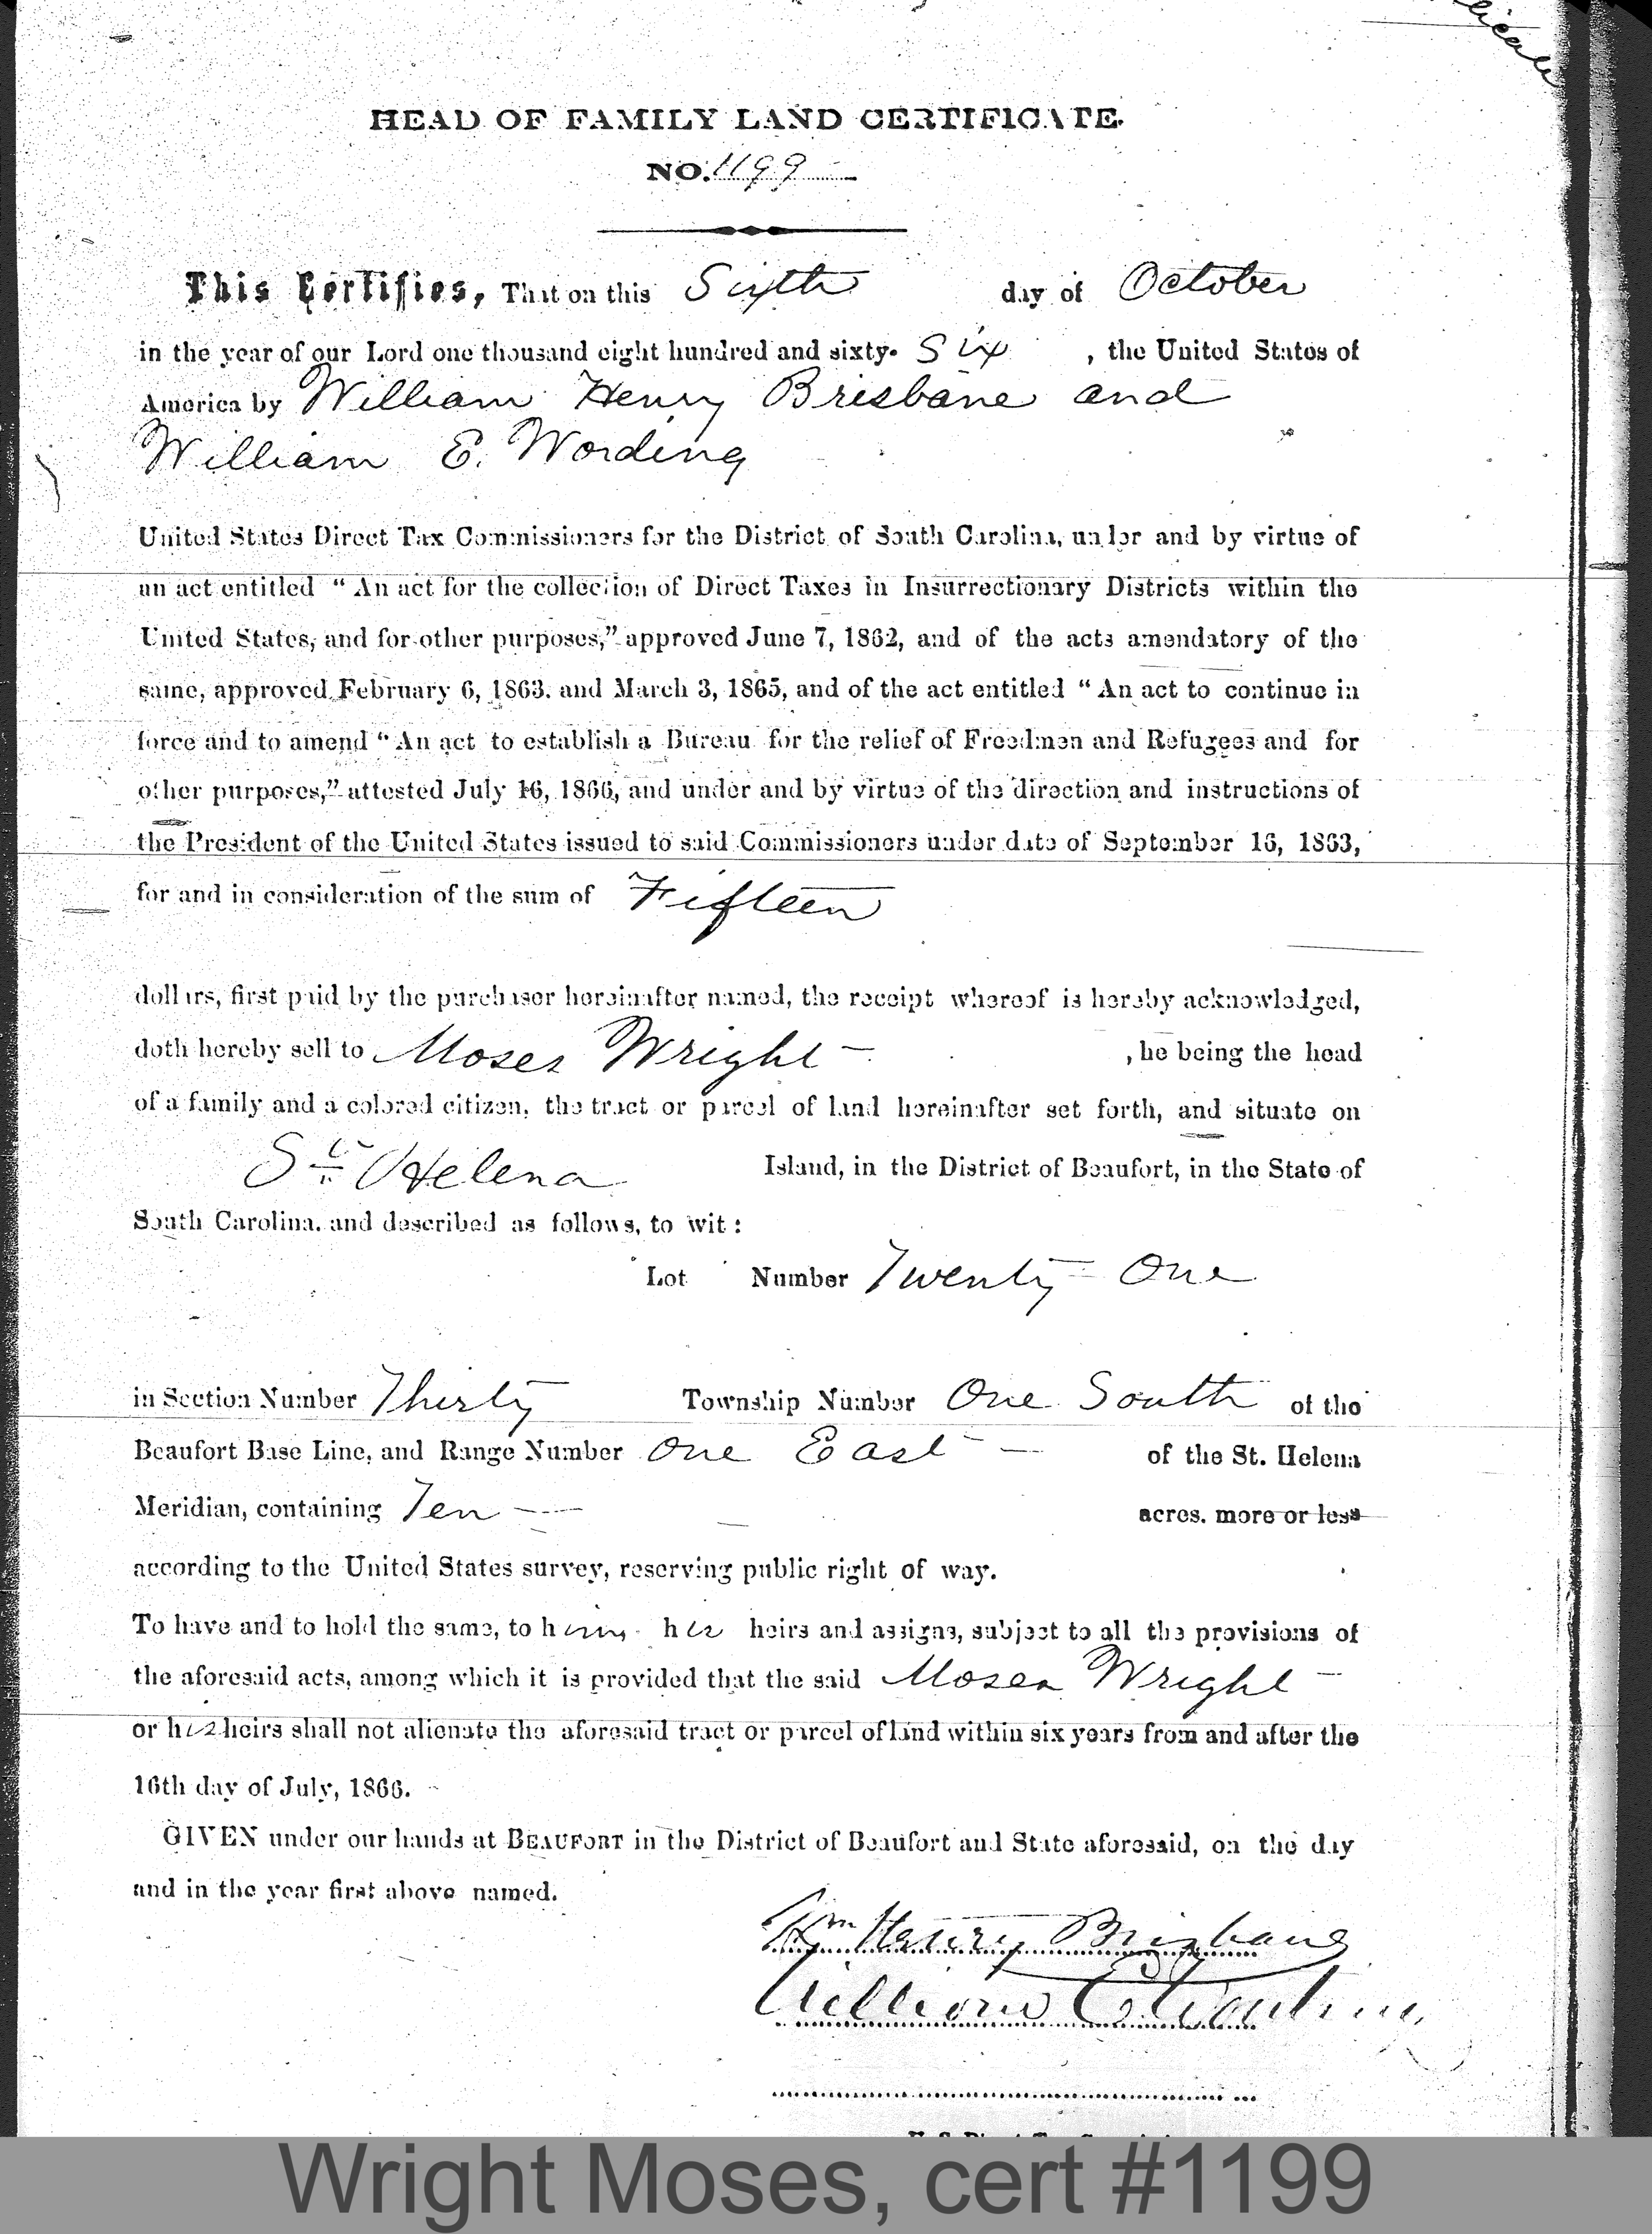 HEAD OF FAMILY LAND CERTIFICATE.
NO. 1199
This Certifies, That on this Sixth day of October
in the year of our Lord one thousand eight hundred and sixty- Six , the United States of
America by William Henry Brisbane and
William E. Wording
United States Direct Tax Commissioners for the District of South Carolina, under and by virtue of
an act entitled “ An act for the collection of Direct Taxes in Insurrectionary Districts within the
United States, and for other purposes,” approved June 7, 1862, and of the acts amendatory of the
same, approved February 6, 1863. and March 3, 1865, and of the act entitled “ An act to continue in
force and to amend “ An act to establish a Bureau for the relief of Freedmen and Refugees and for
other purposes,” attested July 16, 1866, and under and by virtue of the direction and instructions of
the President of the United States issued to said Commissioners under date of September 16, 1863,
for and in consideration of the sum of Fifteen
dollars, first paid by the purchaser hereinafter named, the receipt whereof is hereby acknowledged,
doth hereby sell to Moses Wright — , he being the head
of a family and a colored citizen, the tract or parcel of land hereinafter set forth, and situate on
St. Helena Island, in the District of Beaufort, in the State of
South Carolina. and described as follows, to wit :
Lot Number Twenty = One
in Section Number Thirty Township Number One South of the
Beaufort Base Line, and Range Number One East — of the St. Helena
Meridian, containing Ten — acres. more or less
according to the United States survey, reserving public right of way.
To have and to hold the same, to him his heirs and assigns, subject to all the provisions of
the aforesaid acts, among which it is provided that the said Moses Wright —
or his heirs shall not alienate the aforesaid tract or parcel of land within six years from and after the
16th day of July, 1866.
GIVEN under our hands at BEAUFORT in the District of Beaufort and State aforesaid, on the day
and in the year first above named.
Wm Henry Brisbane
William E. Wording
Wright Moses, cert #1199